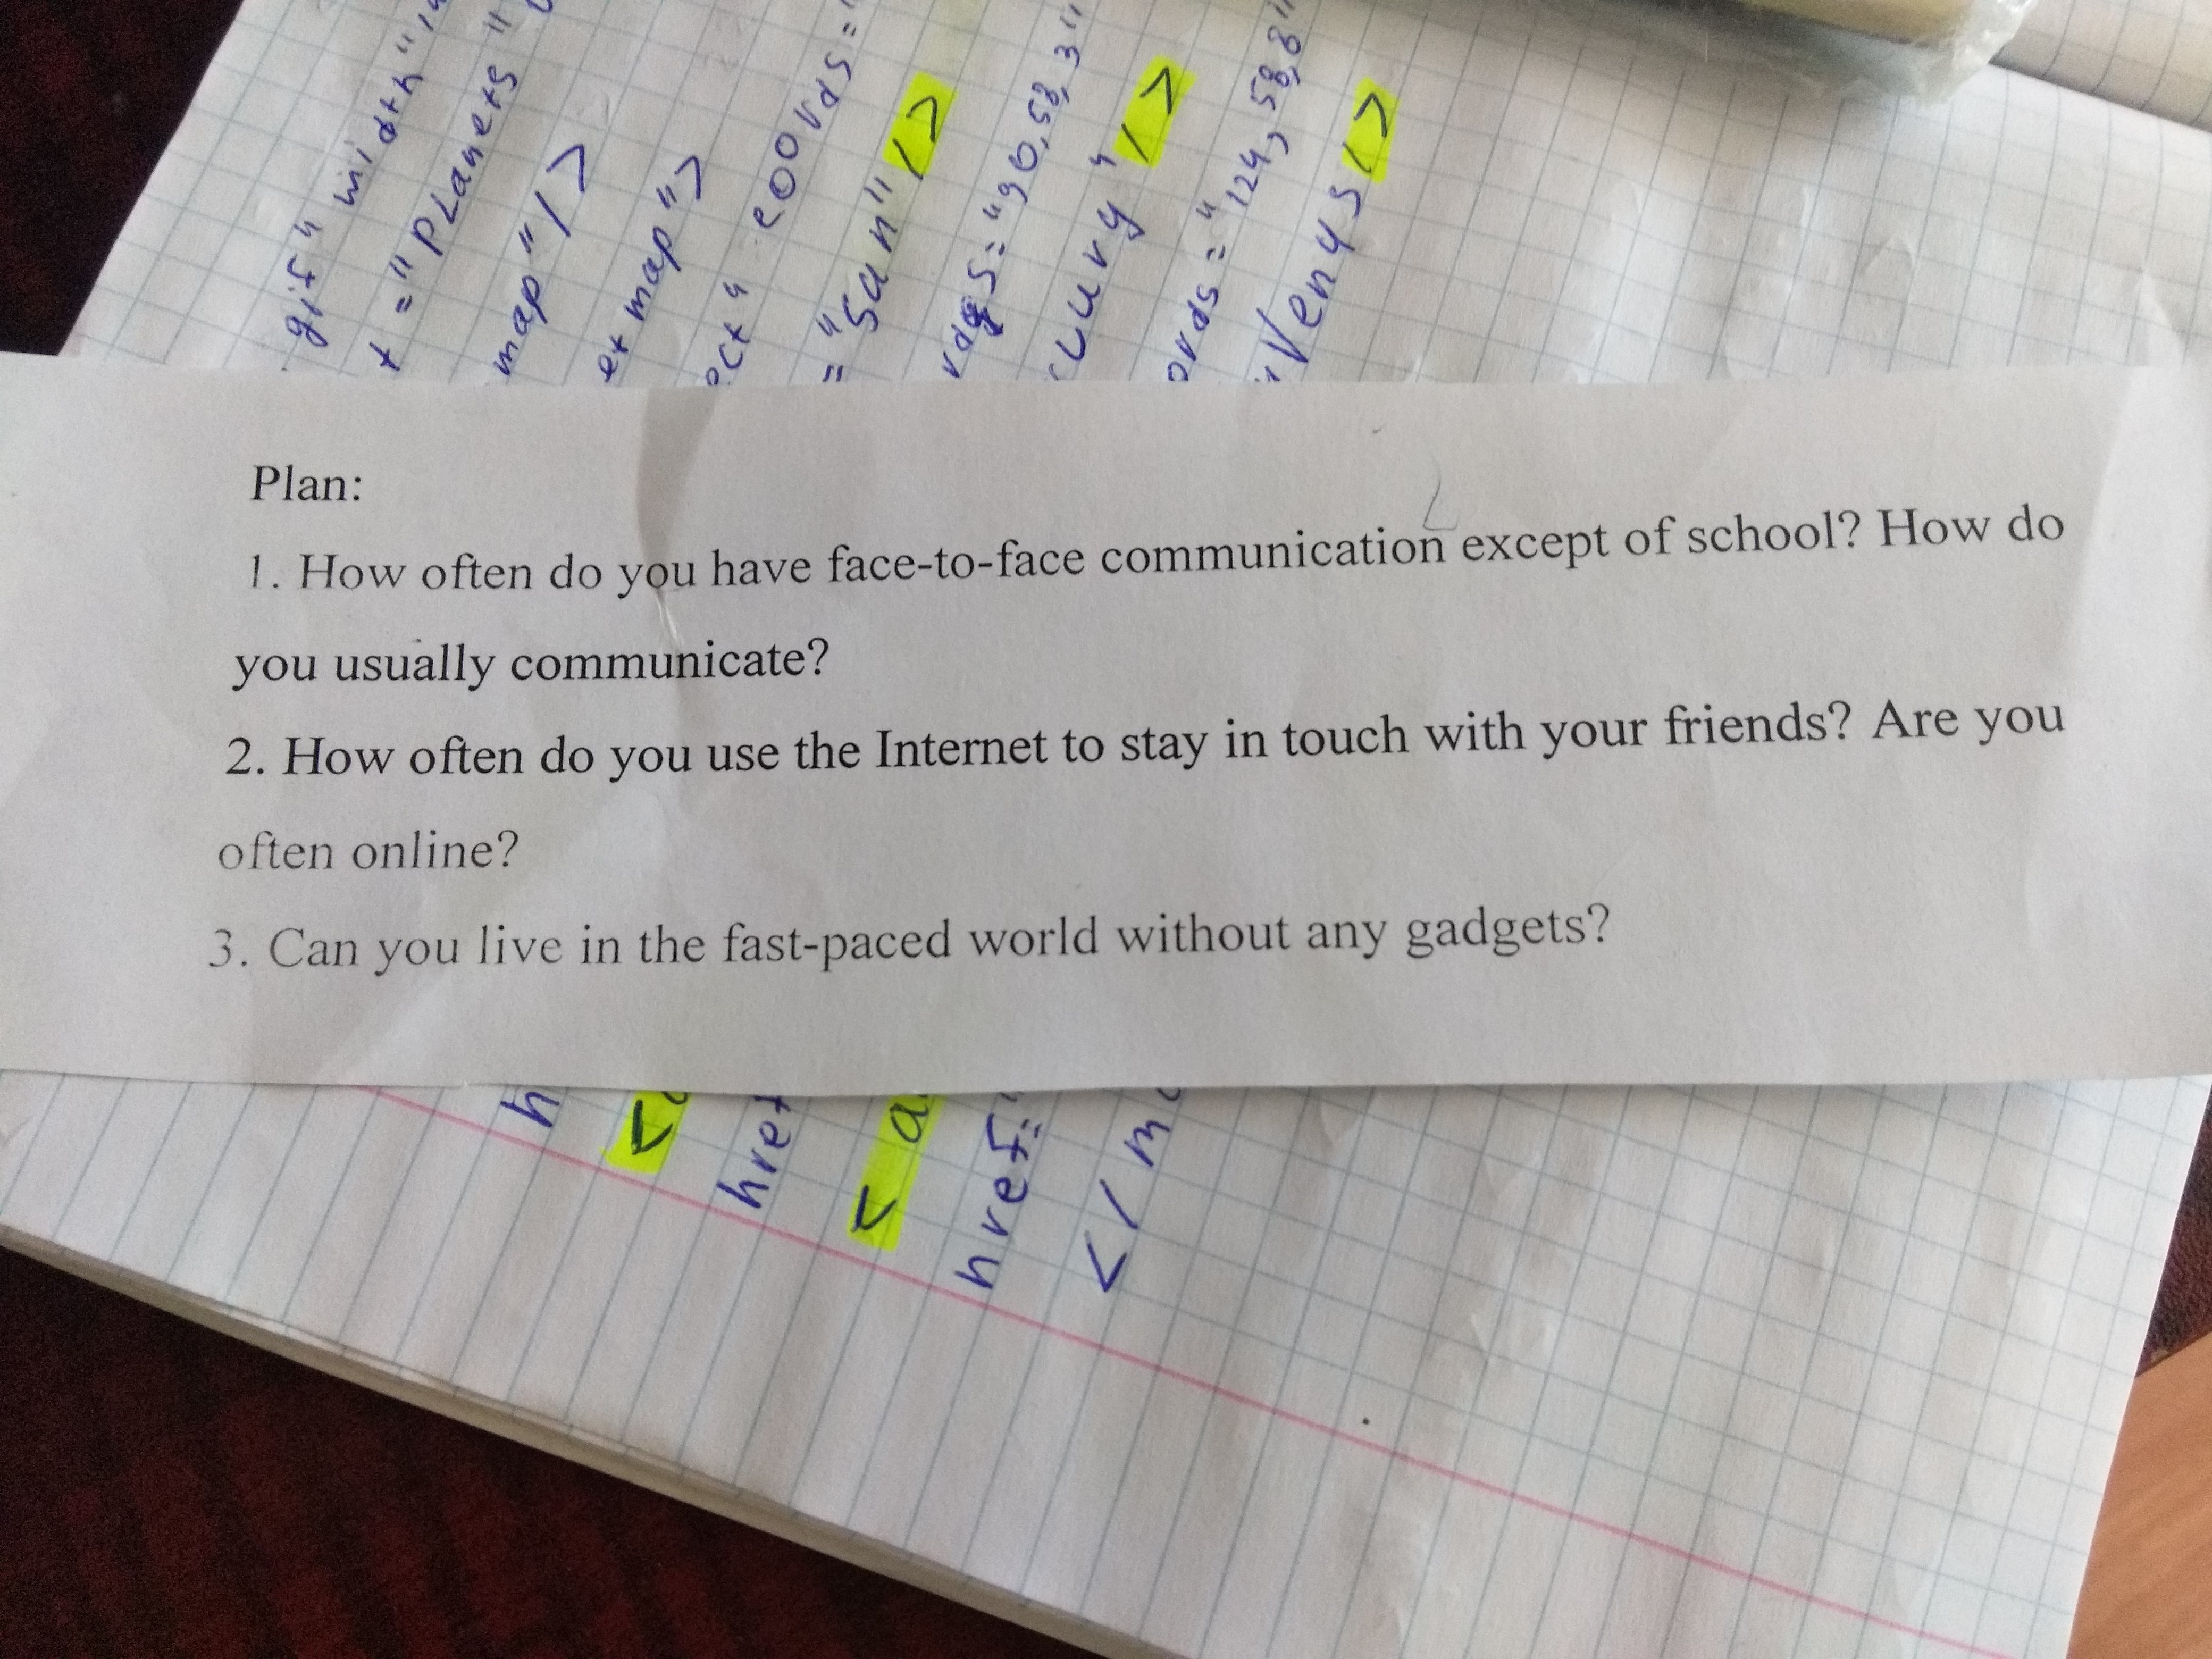 gif" width"
t ="PLanets"
map"/>
et map">
ect" coords="
="Sun"/>
="90,58,3"
cury"/>
ords="124,58,8"
"Venys/>
Plan:
1. How often do you have face-to-face communication except of school? How do
you usually communicate?
2. How often do you use the Internet to stay in touch with your friends? Are you
often online?
3. Can you live in the fast-paced world without any gadgets?
h
<
href
< a
href="
</m